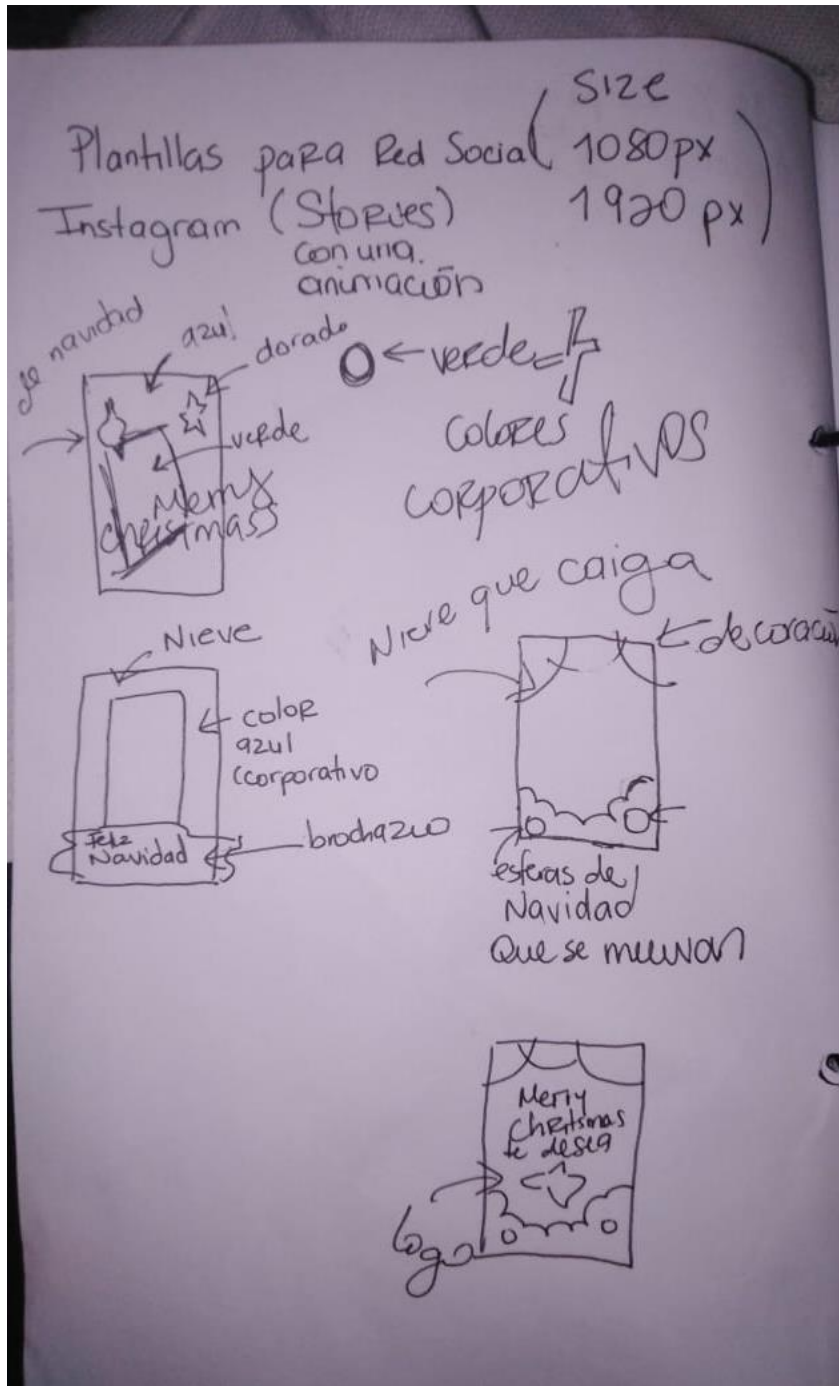 Size
Plantillas para Red Social ( 1080px
Instagram (Stories) 1920 px)
con una.
animación
de navidad
azul
dorado
verde
Merry
Chrismass
verde =
Colores
corporativos
Nieve
color
azul
(corporativo
Feliz
Navidad
brochazo
Nieve que caiga
decoració
esferas de
Navidad
que se muevan
Merry
Christmas
te desea
logo